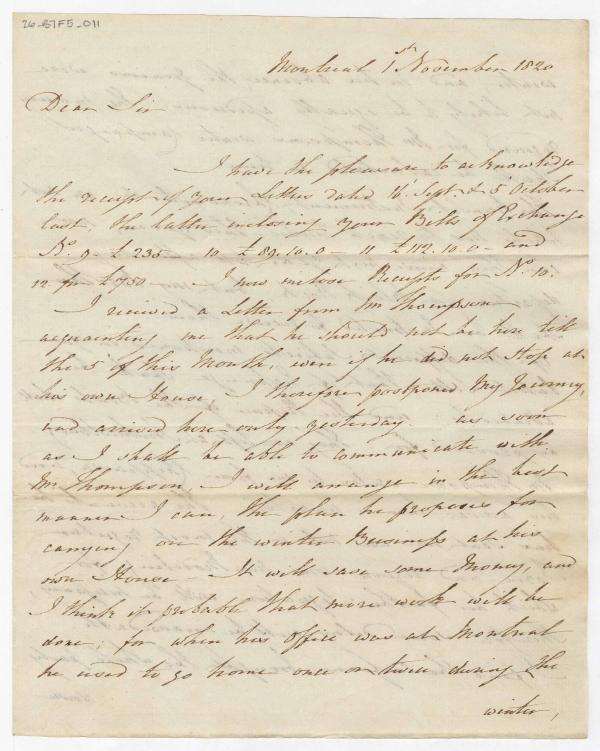 26-B7F5-011
Montreal 1st November 1820
Dear Sir
I have the pleasure to acknowledge
the receipt of your Letters dated 16 Sept. & 5 October
last, the latter inclosing your Bills of Exchange
No. 9 - £ 235 - 10 £ 89.10.0 - 11 £ 112.10.0 - and
12 for £ 750 - I now inclose Receipts for No. 10.
I received a Letter from Mr Thompson
acquainting me that he should not be here till
the 5 of this Month, even if he did not stop at
his own House, I therefore postponed My Journey,
and arrived here only yesterday. as soon
as I shall be able to communicate with
Mr Thompson, I will arrange in the best
manner I can, the plan he proposes for
carrying on the winter Business at his
own House - It will save some Money, and
I think it probable that more work will be
done; for when his office was at Montreal
he used to go home once or twice during the
winter,